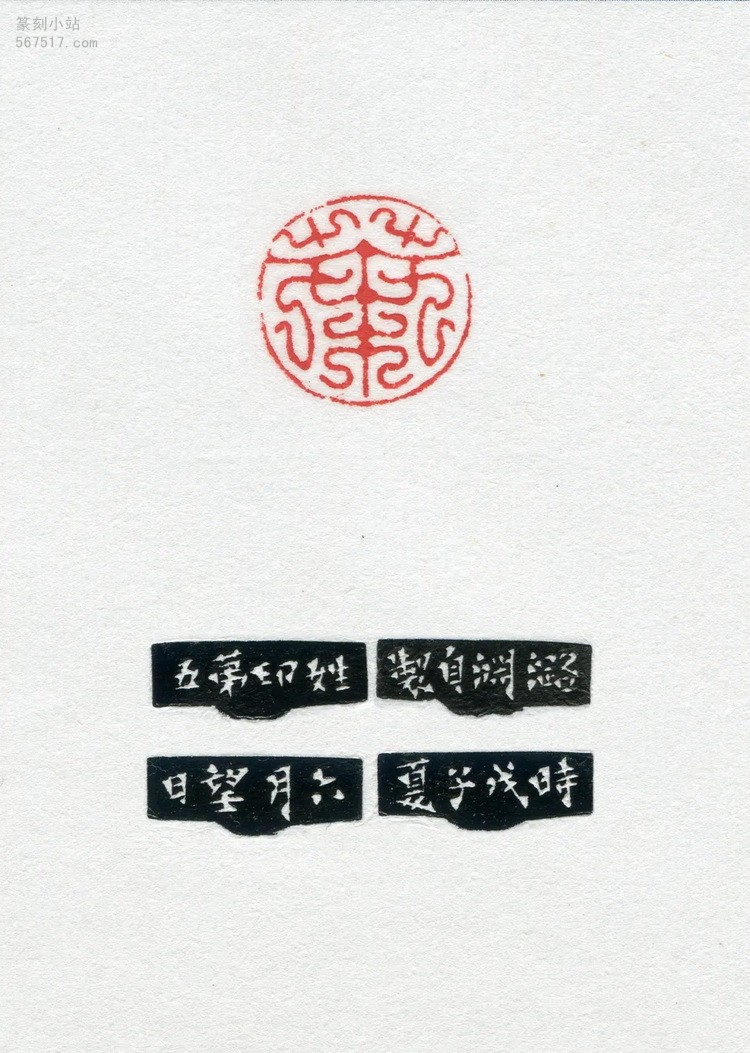 篆刻小站
567517.com
潞淵自製
姓印苐五
時戊子夏
六月望日